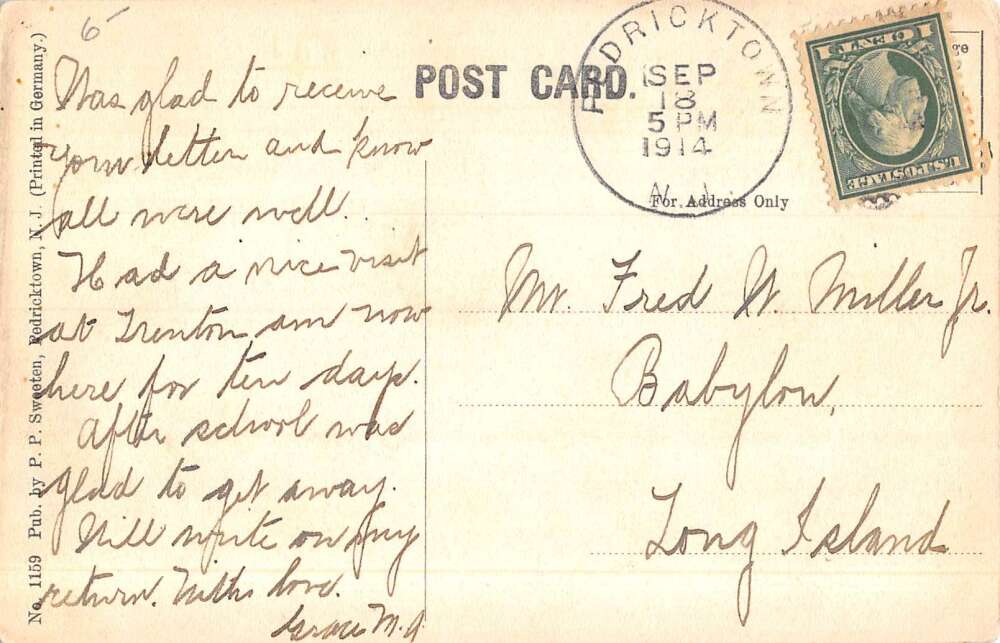 6
POST CARD.
PEDRICKTOWN
SEP
18
5 PM
1914
N. J.
1 CENT 1
U.S. POSTAGE
For Address Only
No. 1159 Pub. by P. P. Sweeten, Pedricktown, N. J. (Printed in Germany.)
Was glad to receive
your letter and know
all were well.
Had a nice visit
at Trenton am now
here for ten days.
After school was
glad to get away.
Will write on my
return. With love.
Grace M.
Mr. Fred W. Miller Jr.
Babylon,
Long Island